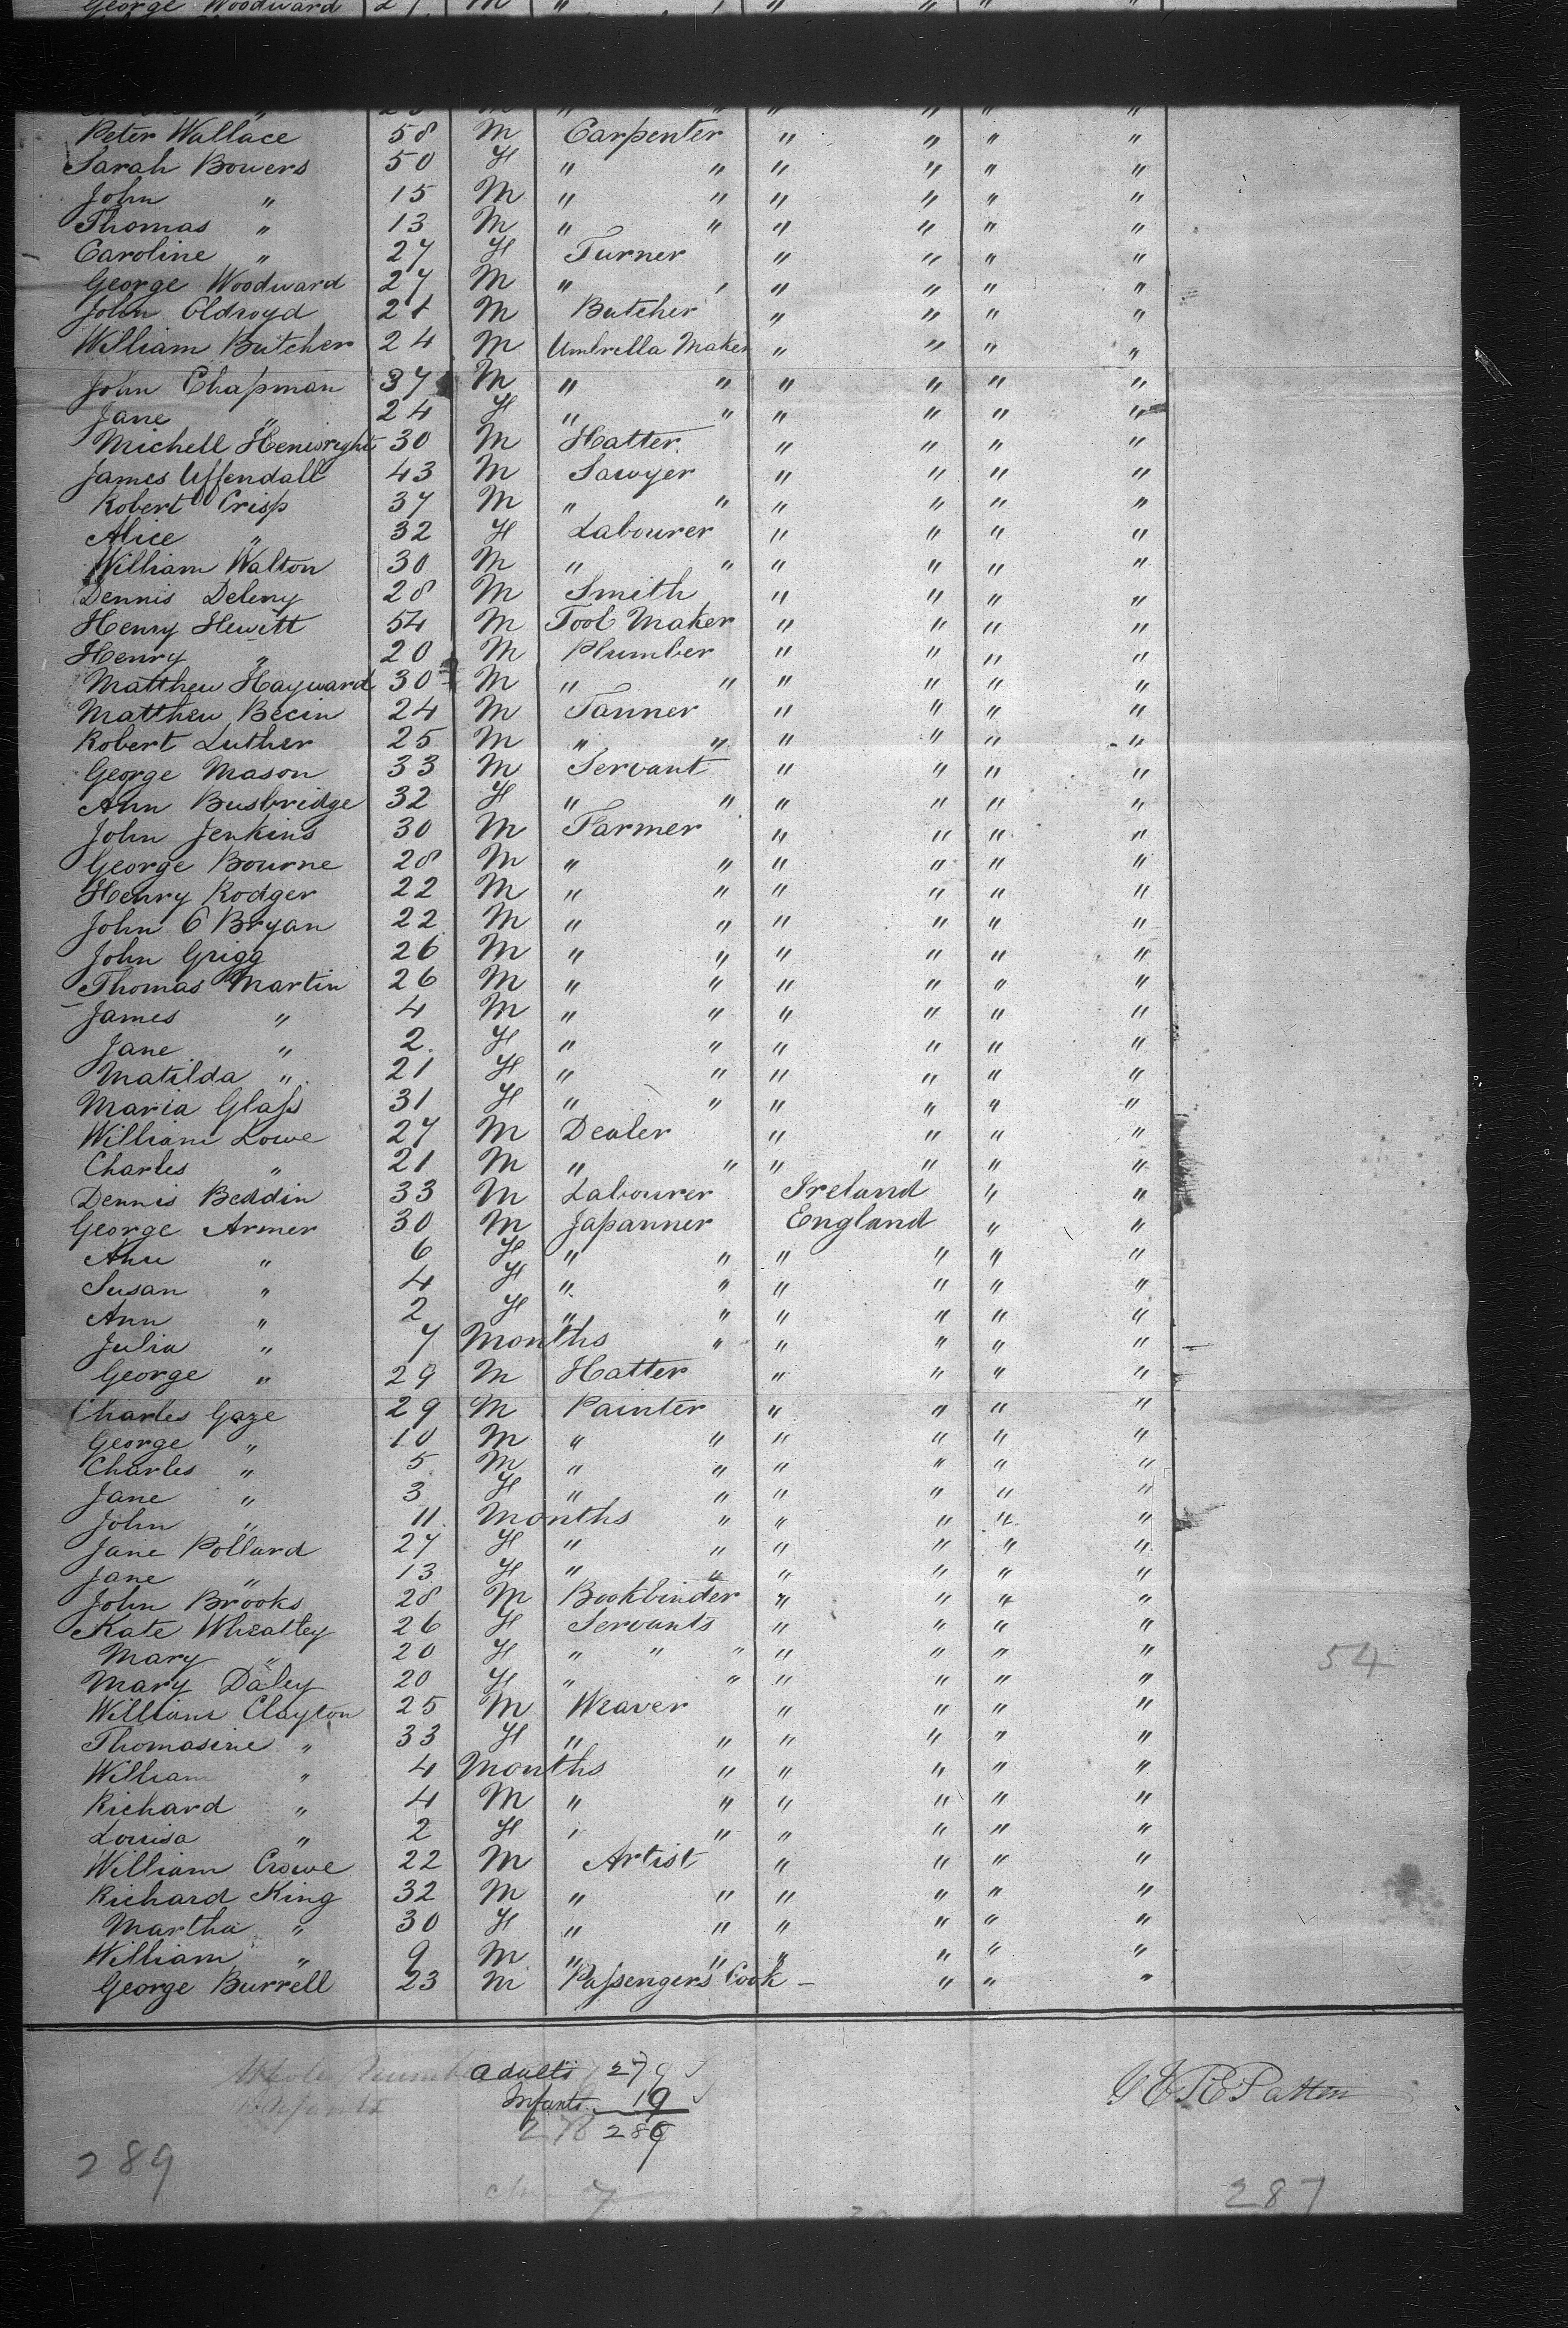 George Woodward 27 M " , " " " "
" M " " " " " "
Peter Wallace 58 M Carpenter " " " "
Sarah Bowers 50 F " " " " " "
John " 15 M " " " " " "
Thomas " 13 M " " " " " "
Caroline " 27 F Turner " " " "
George Woodward 27 M " , " " " "
John Oldroyd 21 M Butcher " " " "
William Butcher 24 M Umbrella Maker " " " "
John Chapman 37 M " " " " " "
Jane " 24 F " " " " " "
Michell Heniwright 30 M Hatter " " " "
James Uffendall 43 M Sawyer " " " "
Robert Crisp 37 M " " " " " "
Alice " 32 F Labourer " " " "
William Walton 30 M " " " " " "
Dennis Deleny 28 M Smith " " " "
Henry Hewitt 54 M Tool Maker " " " "
Henry " 20 M Plumber " " " "
Matthew Hayward 30 M " " " " " "
Matthew Becin 24 M Tanner " " " "
Robert Luther 25 M " " " " " "
George Mason 33 M Servant " " " "
Ann Busbridge 32 F " " " " " "
John Jenkins 30 M Farmer " " " "
George Bourne 28 M " " " " " "
Henry Rodger 22 M " " " " " "
John O Bryan 22 M " " " " " "
John Grigg 26 M " " " " " "
Thomas Martin 26 M " " " " " "
James " 4 M " " " " " "
Jane " 2 F " " " " " "
Matilda " 21 F " " " " " "
Maria Glass 31 F " " " " " "
William Lowe 27 M Dealer " " " "
Charles " 21 M " " " " " "
Dennis Beddin 33 M Labourer Ireland " "
George Armer 30 M Japanner England " "
Ann " 6 F " " " " " "
Susan " 4 F " " " " " "
Ann " 2 F " " " " " "
Julia " 7 Months " " " " "
George " 29 M Hatter " " " "
Charles Gaze 29 M Painter " " " "
George " 10 M " " " " " "
Charles " 5 M " " " " " "
Jane " 3 F " " " " " "
John " 11 Months " " " " "
Jane Pollard 27 F " " " " " "
Jane " 13 F " " " " " "
John Brooks 28 M Bookbinder " " " "
Kate Wheatley 26 F Servants " " " "
Mary " 20 F " " " " " " " 54
Mary Daley 20 F " " " " " "
William Clayton 25 M Weaver " " " "
Thomasine " 33 F " " " " " "
William " 4 Months " " " " "
Richard " 4 M " " " " " "
Louisa " 2 F " " " " " "
William Crowe 22 M Artist " " " "
Richard King 32 M " " " " " "
Martha " 30 F " " " " " "
William " 9 M " " " " " "
George Burrell 23 M Passengers Cook - " " "
Whole Numb Adults 279
Infants Infants 19
278 289
289
7
287